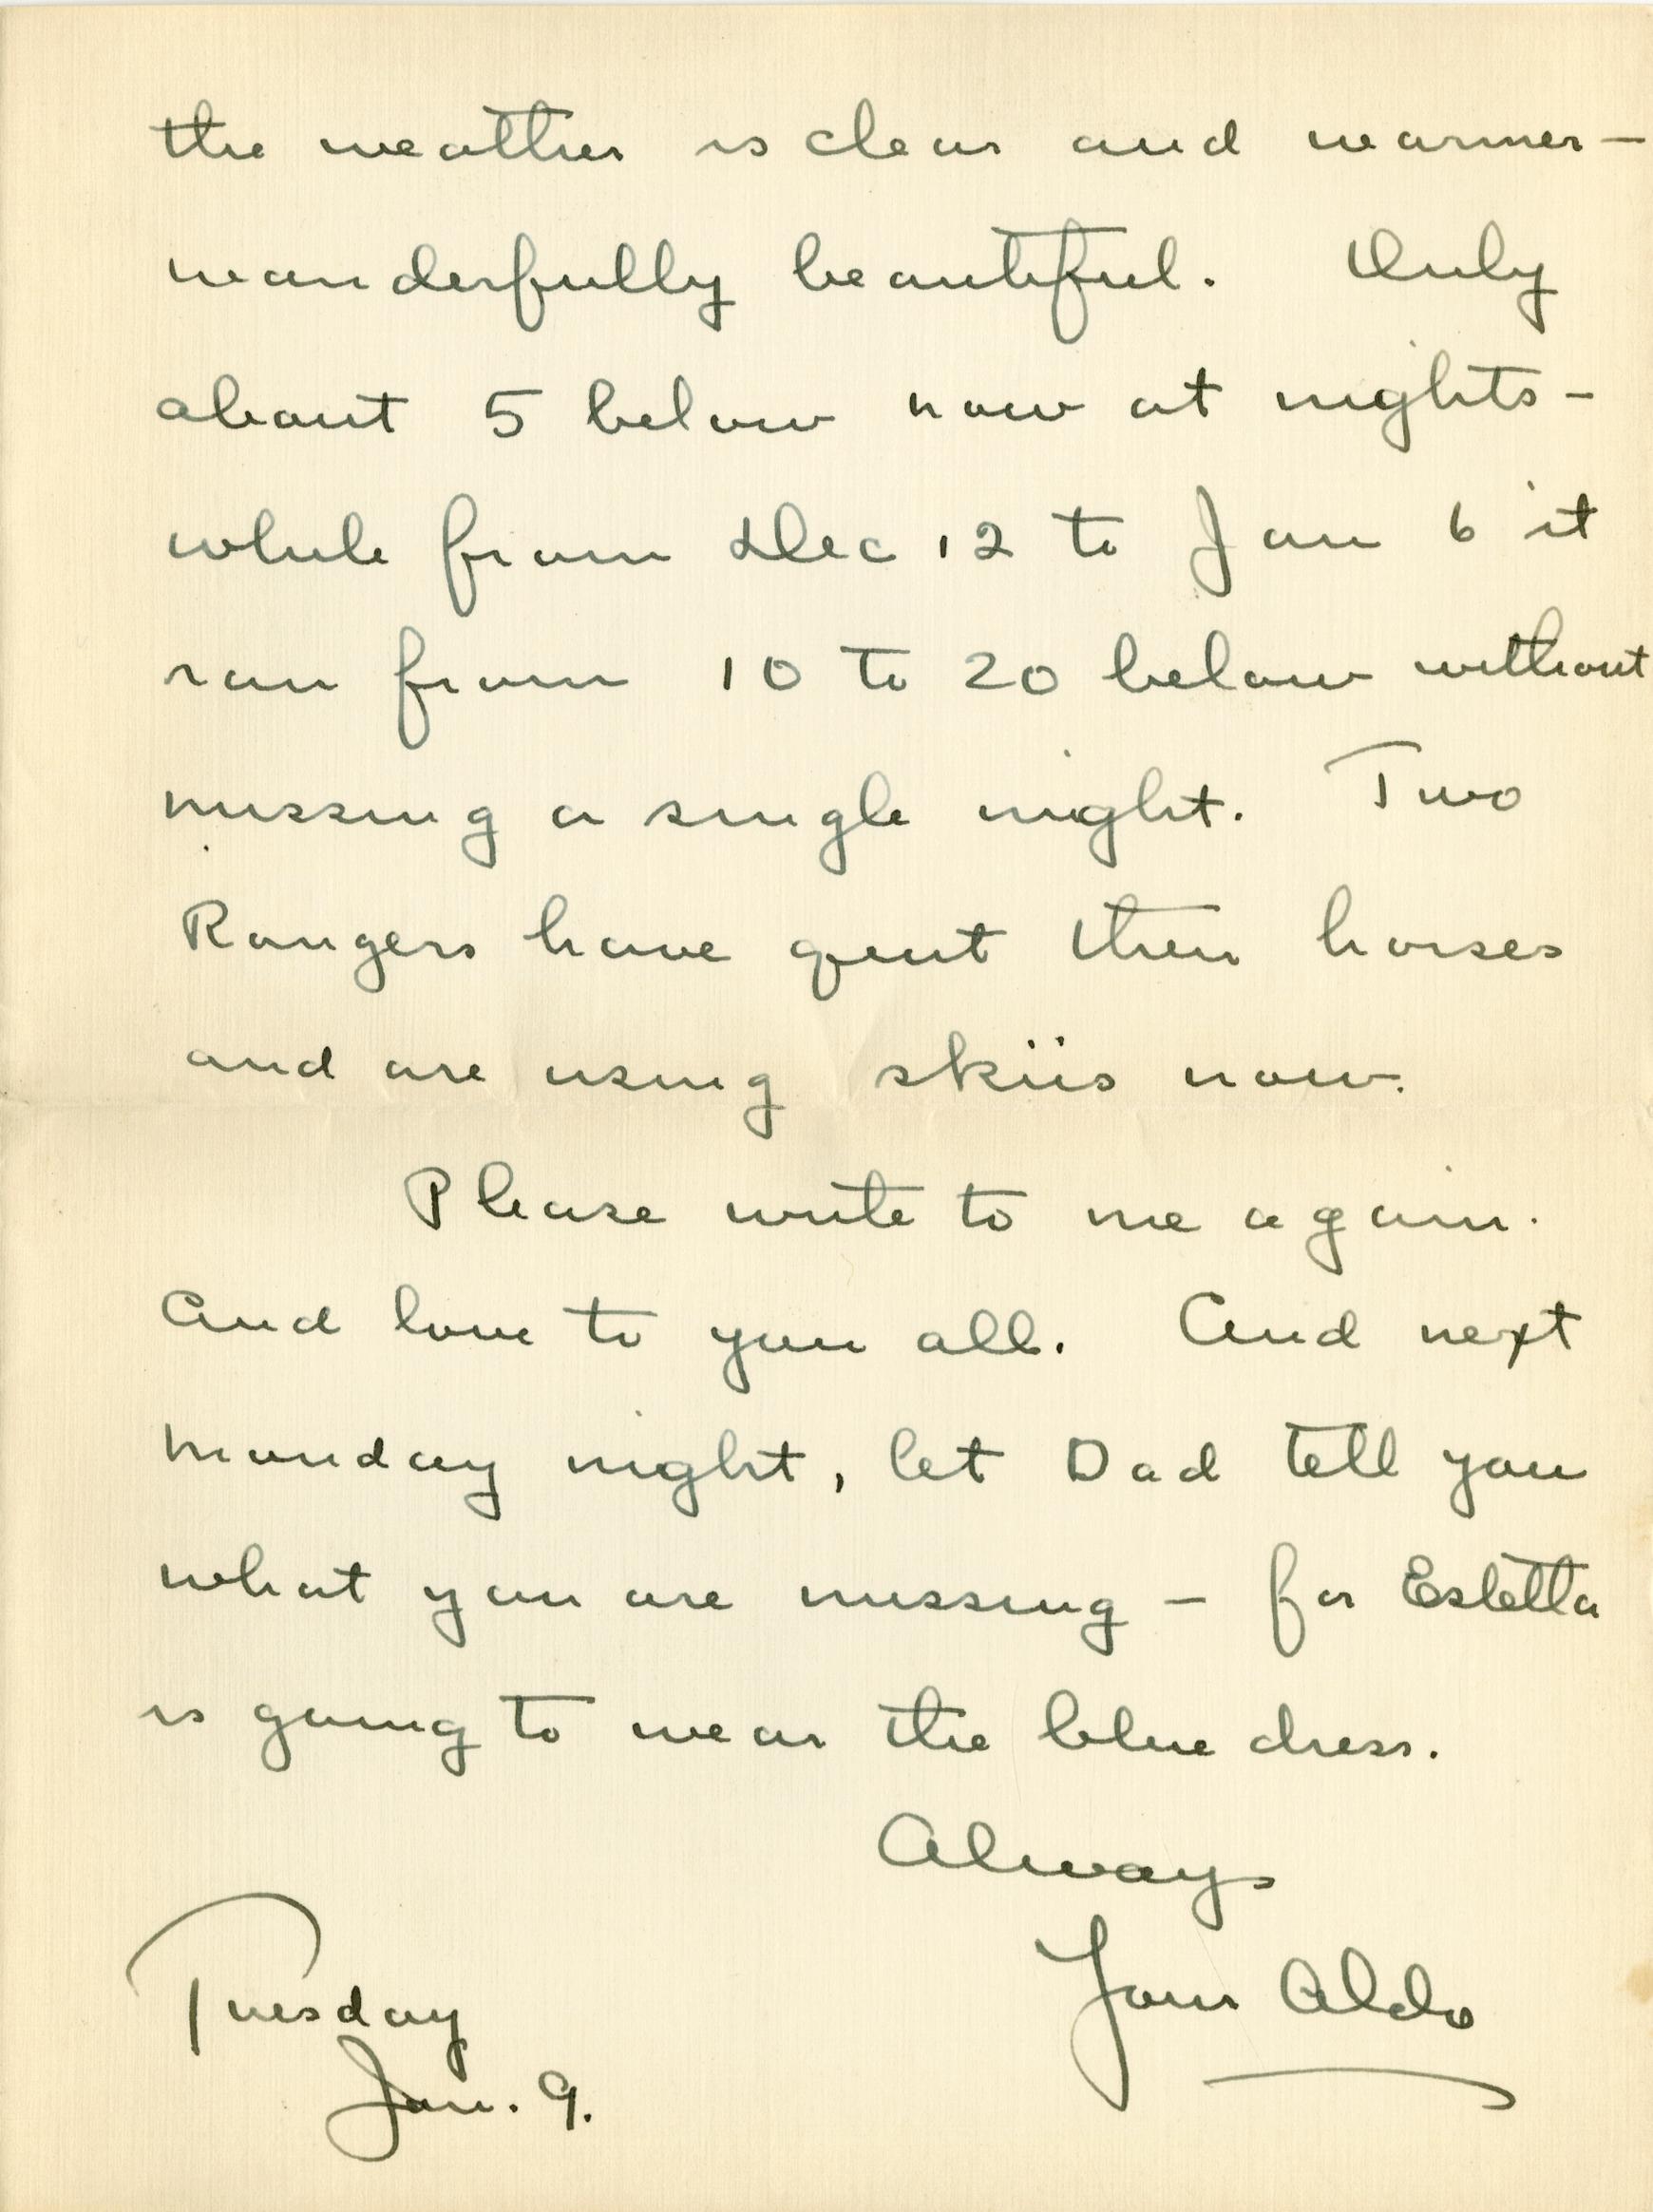 the weather is clear and warmer —
wonderfully beautiful. Only
about 5 below now at nights -
while from Dec 12 to Jan 6 it
ran from 10 to 20 below without
missing a single night. Two
Rangers have quit their horses
and are using skiis now.
Please write to me again.
And love to you all. And next
Monday night, let Dad tell you
what you are missing — for Estella
is going to wear the blue dress.
Always
Your Aldo
Tuesday
Jan. 9.